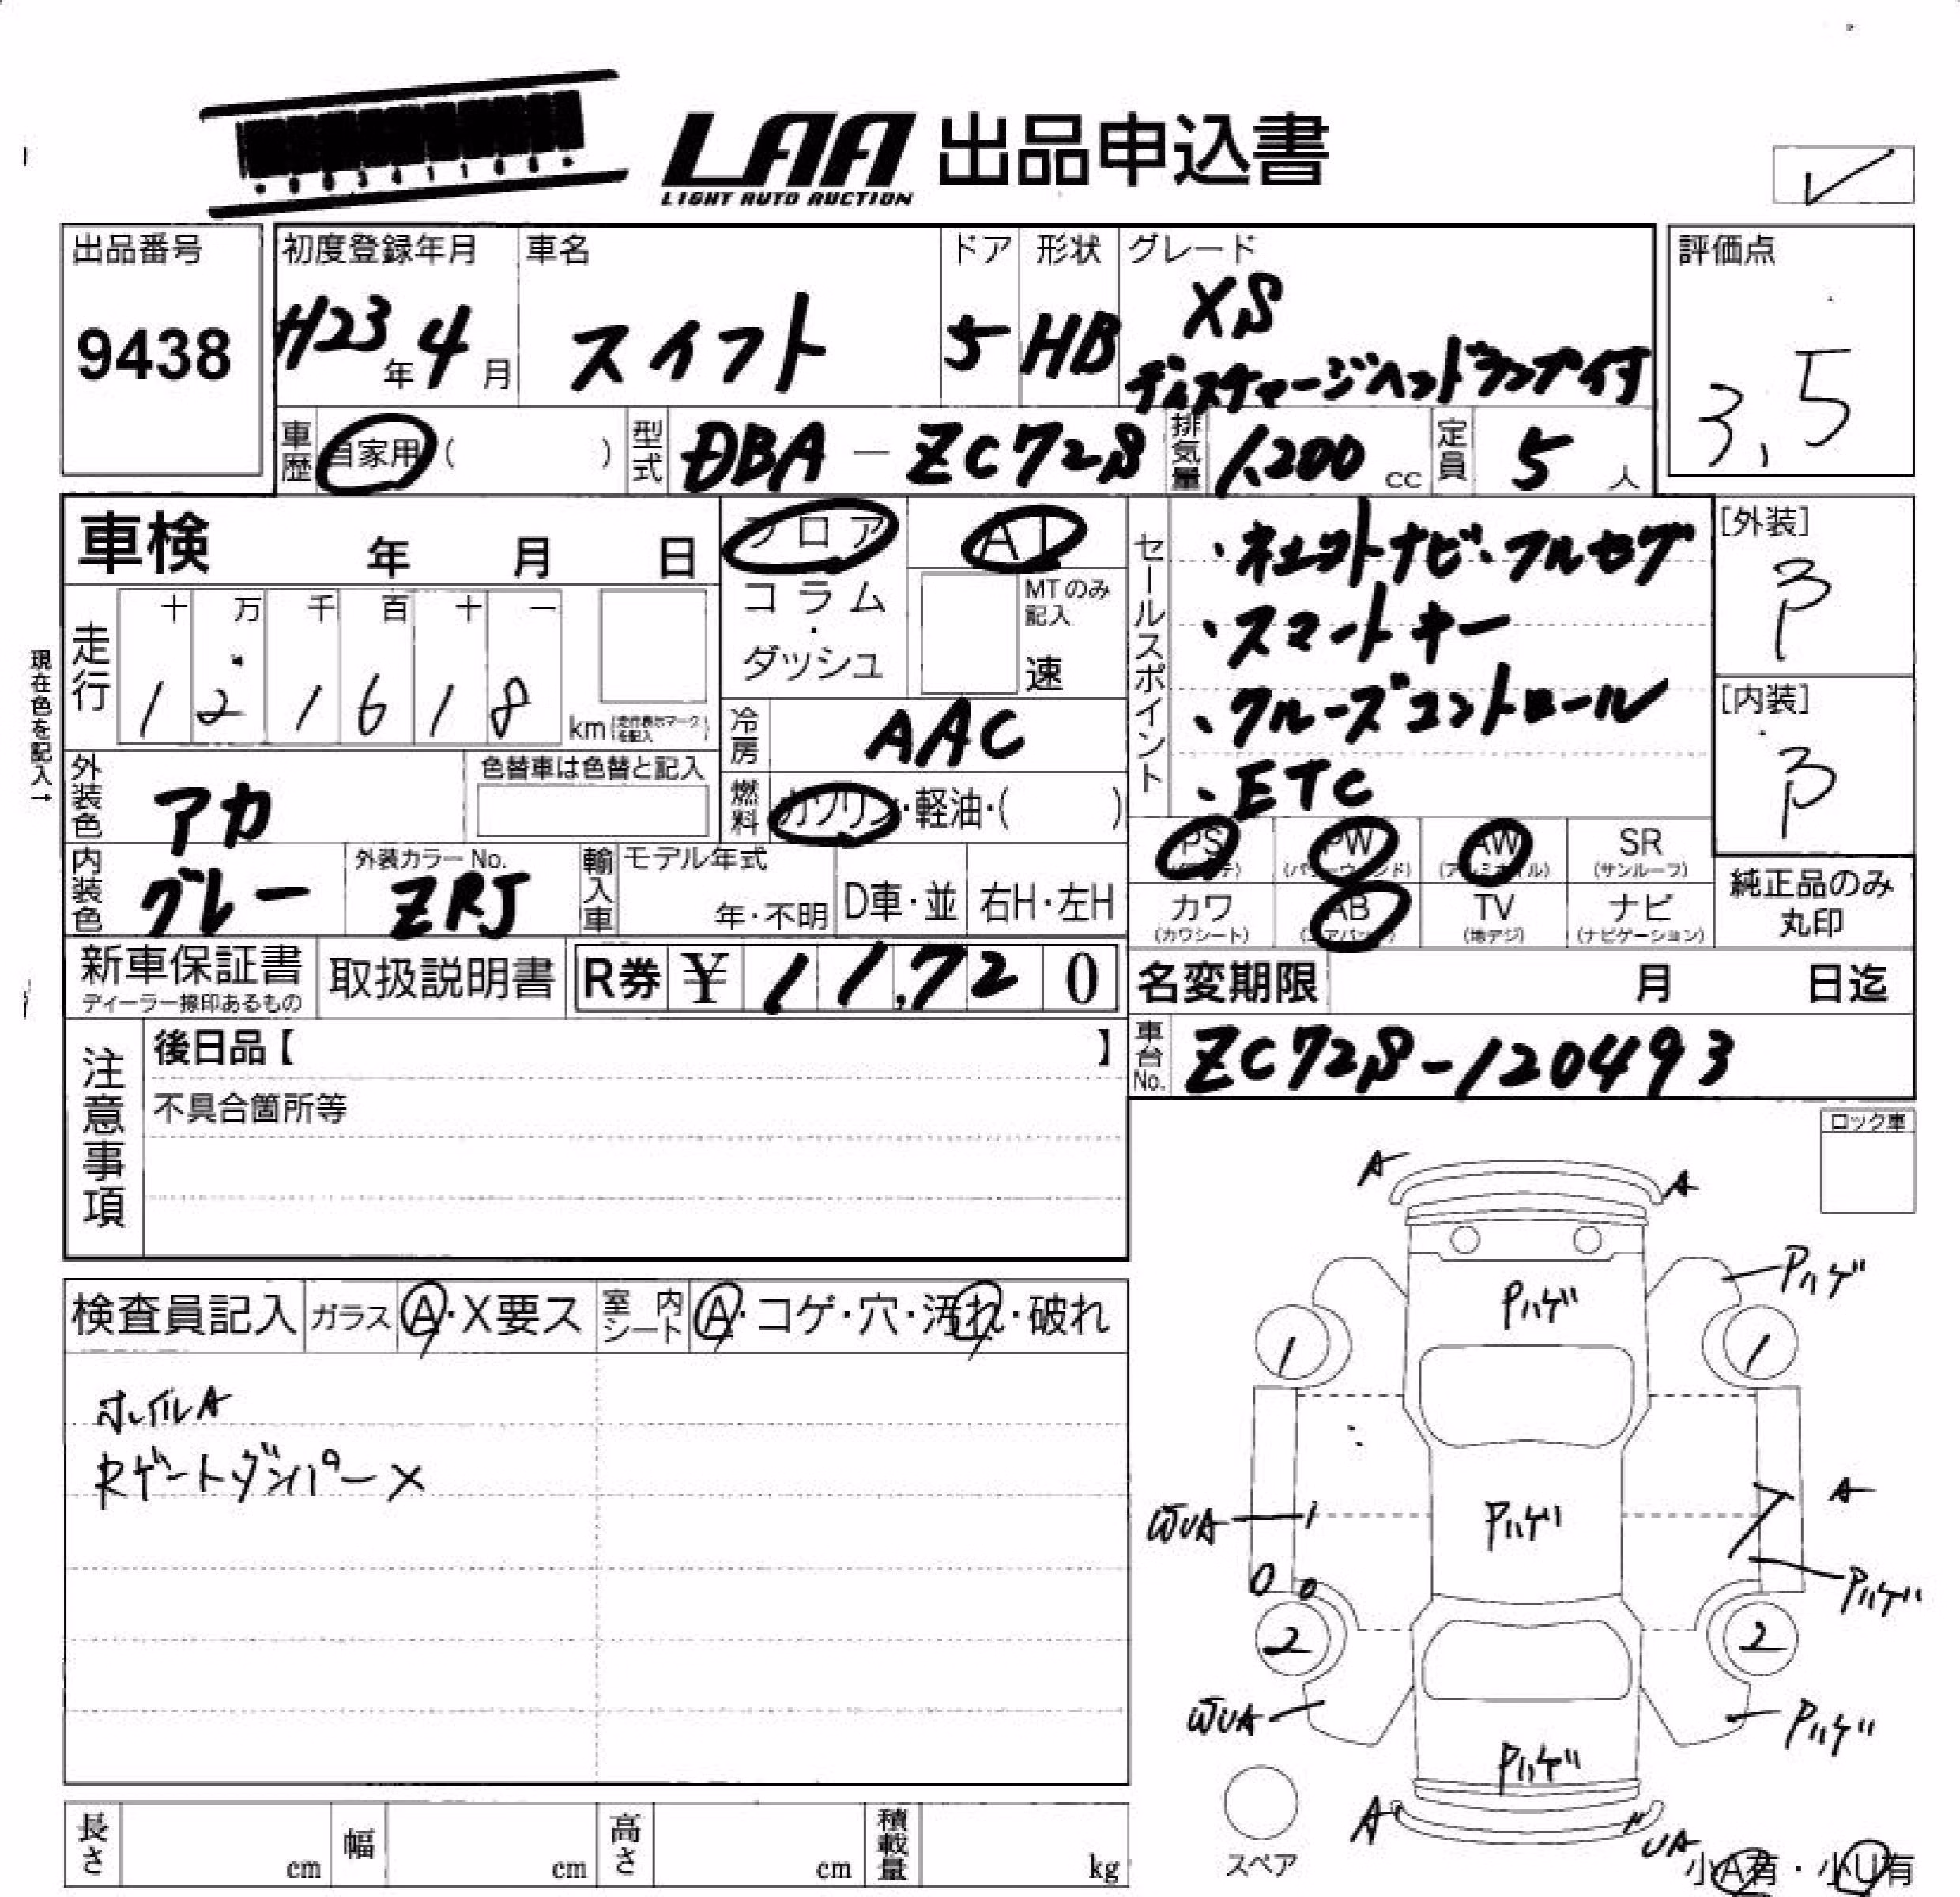 LAA 出品申込書
LIGHT AUTO AUCTION
出品番号
9438
初度登録年月
H23年4月
車名
スイフト
ドア
5
形状
HB
グレード
XS
ディスチャージヘッドランプ付
評価点
3.5
車歴
自家用( )
型式
DBA-ZC72S
排気量
1,200 cc
定員
5人
車検 年 月 日
フロア
コラム・ダッシュ
MTのみ記入
速
走行
十 万 千 百 十 一
1 2 1 6 1 8 km
現在色を記入→
冷房
AAC
燃料
ガソリン・軽油・( )
外装色
アカ
色替車は色替と記入
内装色
グレー
外装カラーNo.
ZRJ
輸入車
モデル年式
年・不明
D車・並
右H・左H
セールスポイント
・ネェクトナビ・フルセグ
・スマートキー
・クルーズコントロール
・ETC
[外装]
[内装]
PS
PW
AW
SR
(サンルーフ)
カワ
(カワシート)
AB
TV
(地デジ)
ナビ
(ナビゲーション)
純正品のみ
丸印
新車保証書
ディーラー捺印あるもの
取扱説明書
R券 ¥ 11,720
名変期限 月 日迄
車台No.
ZC72S-120493
注意事項
後日品【 】
不具合箇所等
ロック車
検査員記入
ガラス
A・X要ス
室内シート
A・コゲ・穴・汚れ・破れ
ホイルA
Rゲートダンパー×
A
A
Pハゲ
Pハゲ
1
1
A
WUA
1
Pハゲ
Pハゲ
0
0
2
2
WUA
Pハゲ
Pハゲ
A
UA
スペア
小A有・小U有
長さ cm
幅 cm
高さ cm
積載量 kg